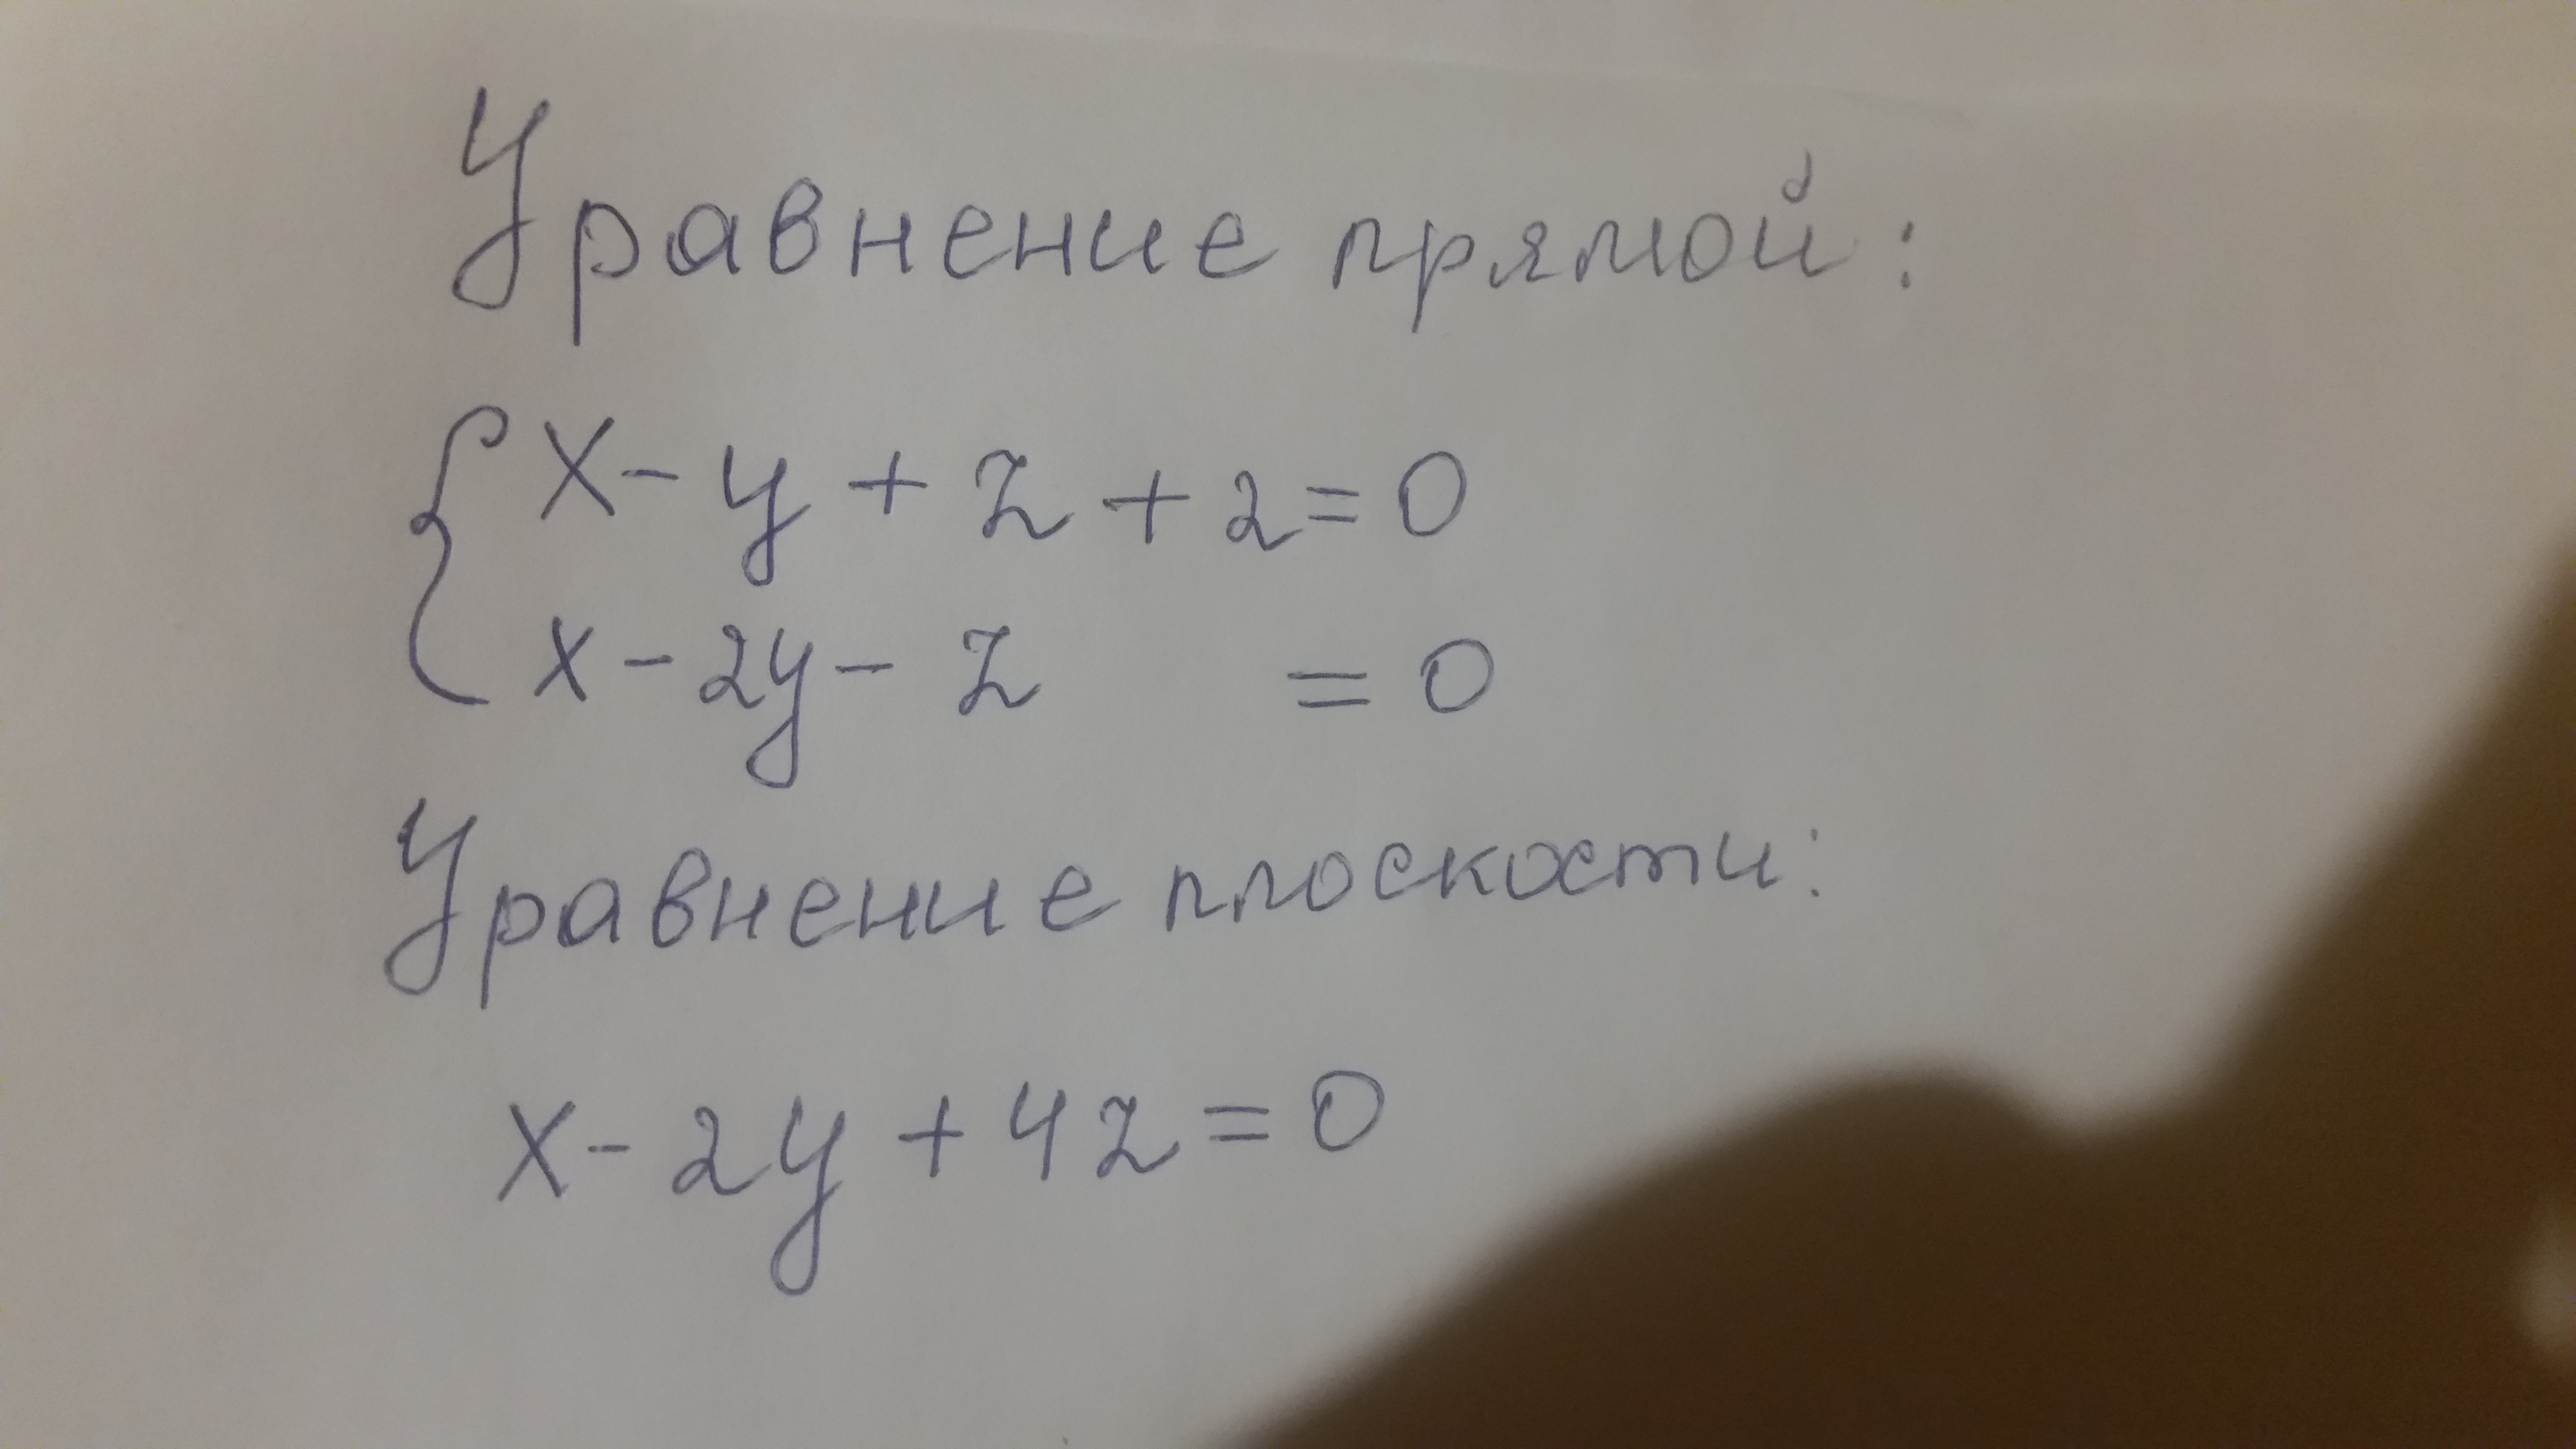 Уравнение прямой:
{ x - y + z + 2 = 0
x - 2y - z = 0
Уравнение плоскости:
x - 2y + 4z = 0